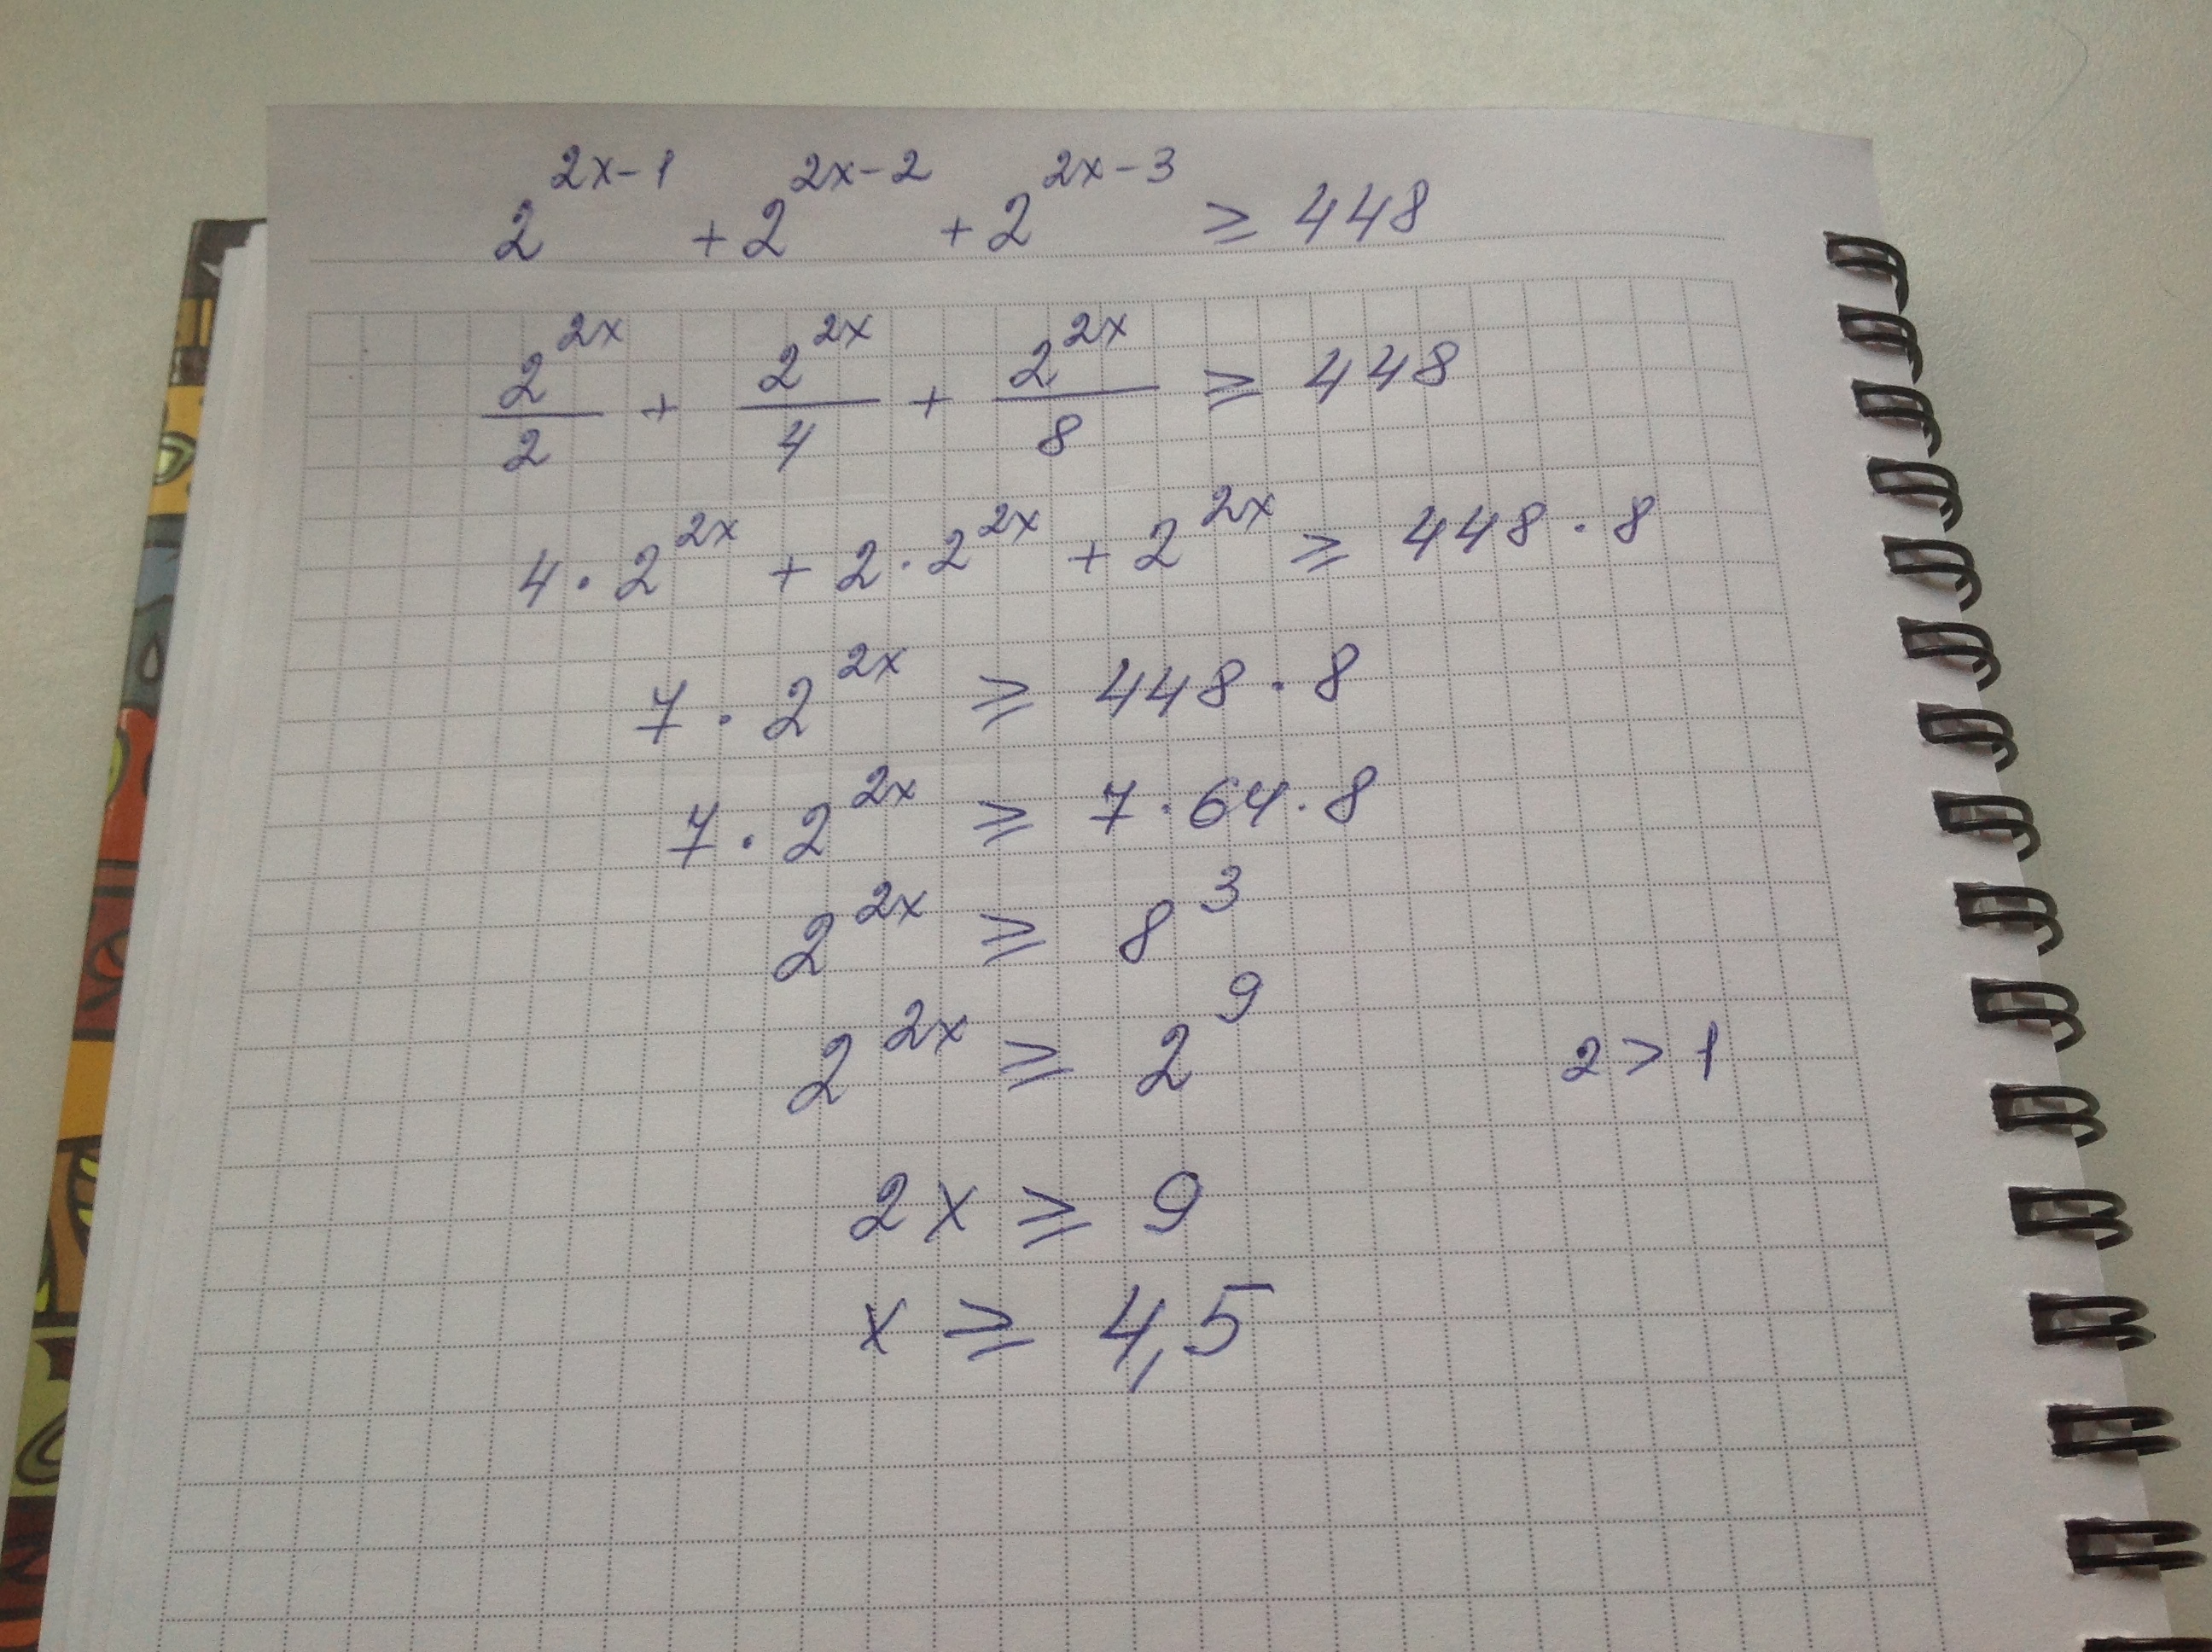 2^{2x-1} + 2^{2x-2} + 2^{2x-3} ≥ 448
\frac{2^{2x}}{2} + \frac{2^{2x}}{4} + \frac{2^{2x}}{8} ≥ 448
4 · 2^{2x} + 2 · 2^{2x} + 2^{2x} ≥ 448 · 8
7 · 2^{2x} ≥ 448 · 8
7 · 2^{2x} ≥ 7 · 64 · 8
2^{2x} ≥ 8^{3}
2^{2x} ≥ 2^{9} 2 > 1
2x ≥ 9
x ≥ 4,5